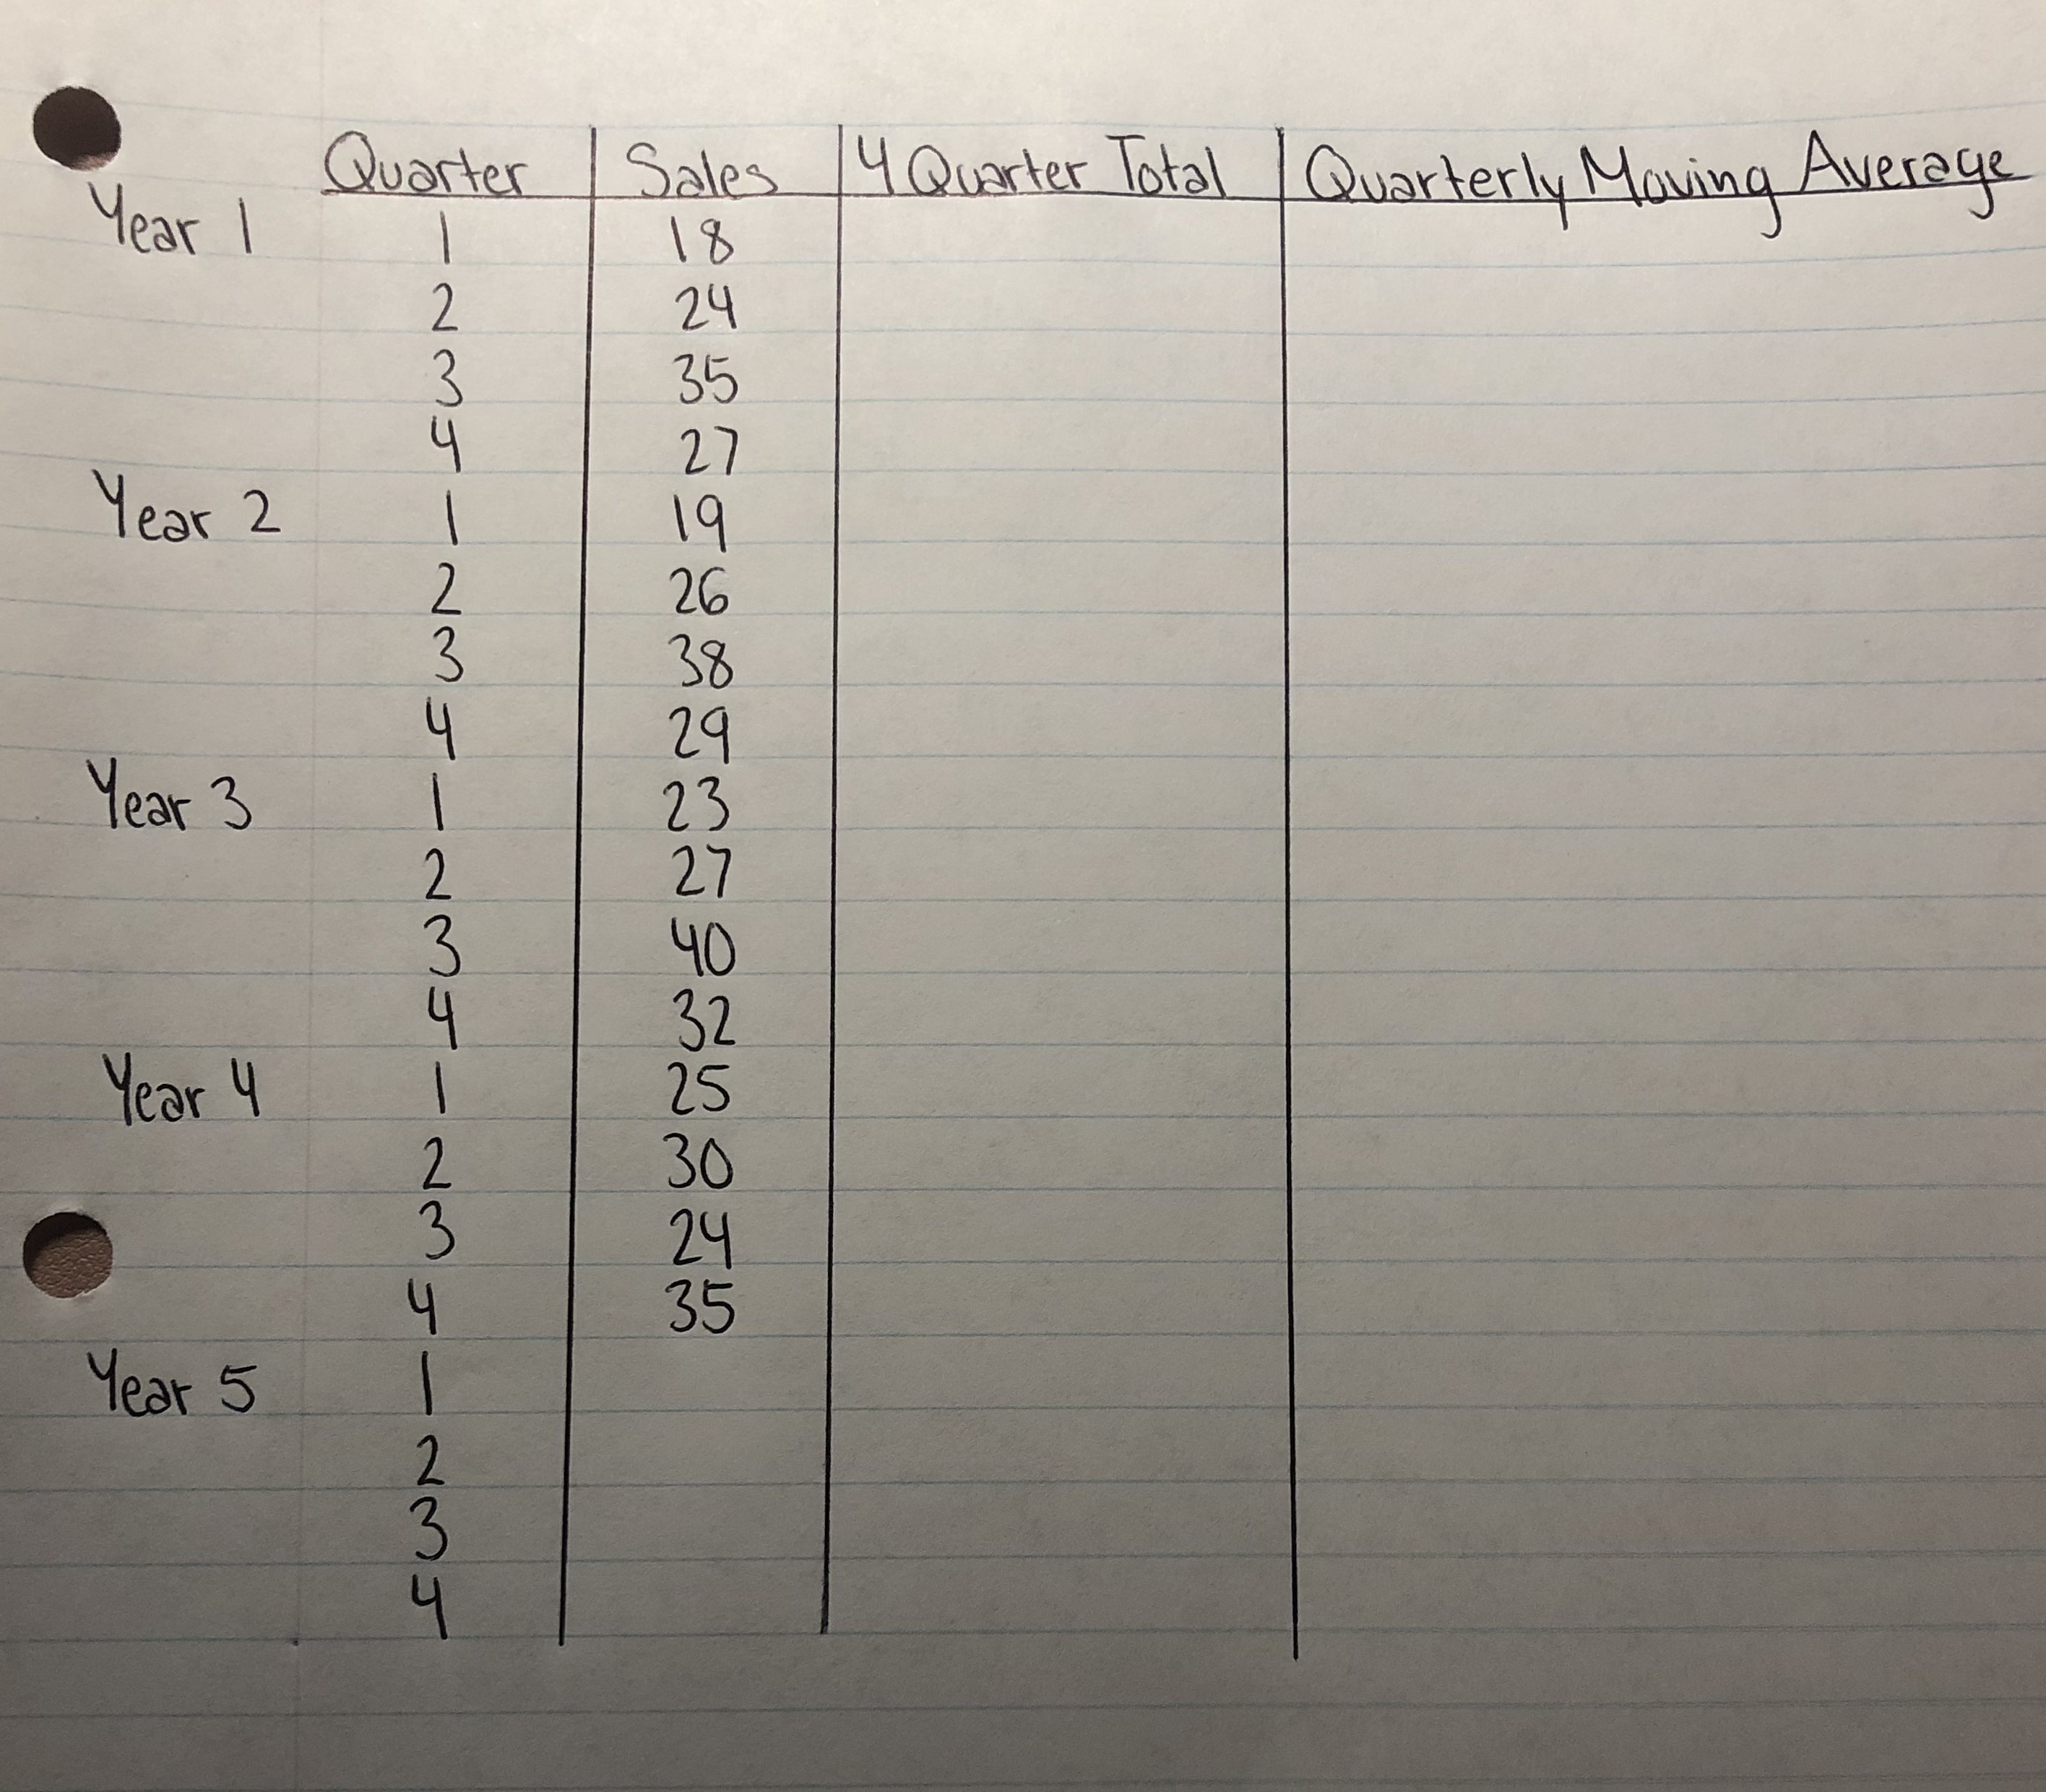 Quarter Sales 4 Quarter Total Quarterly Moving Average
Year 1 1 18
2 24
3 35
4 27
Year 2 1 19
2 26
3 38
4 29
Year 3 1 23
2 27
3 40
4 32
Year 4 1 25
2 30
3 24
4 35
Year 5 1
2
3
4